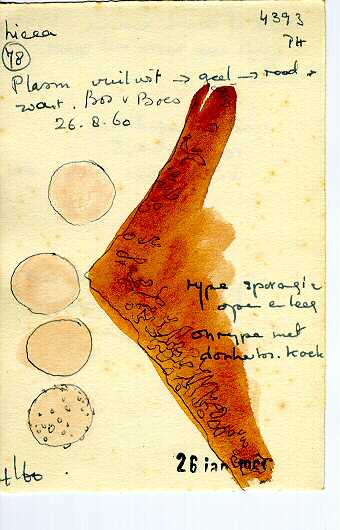 Licea
4393
PH
78
Plasm vuilwit → geel → rood →
zwart. Bos v Boeo
26.8.60
rype sporangia
open en leeg
onrype met
donker kook
26 jan
4/60